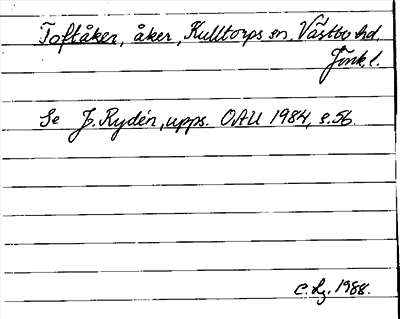 Toftåker, åker, Kulltorps sn. Västbo hd.
Jönk. l.
Se J. Rydén, upps. OAU 1984, s. 56.
C. Lg. 1988.